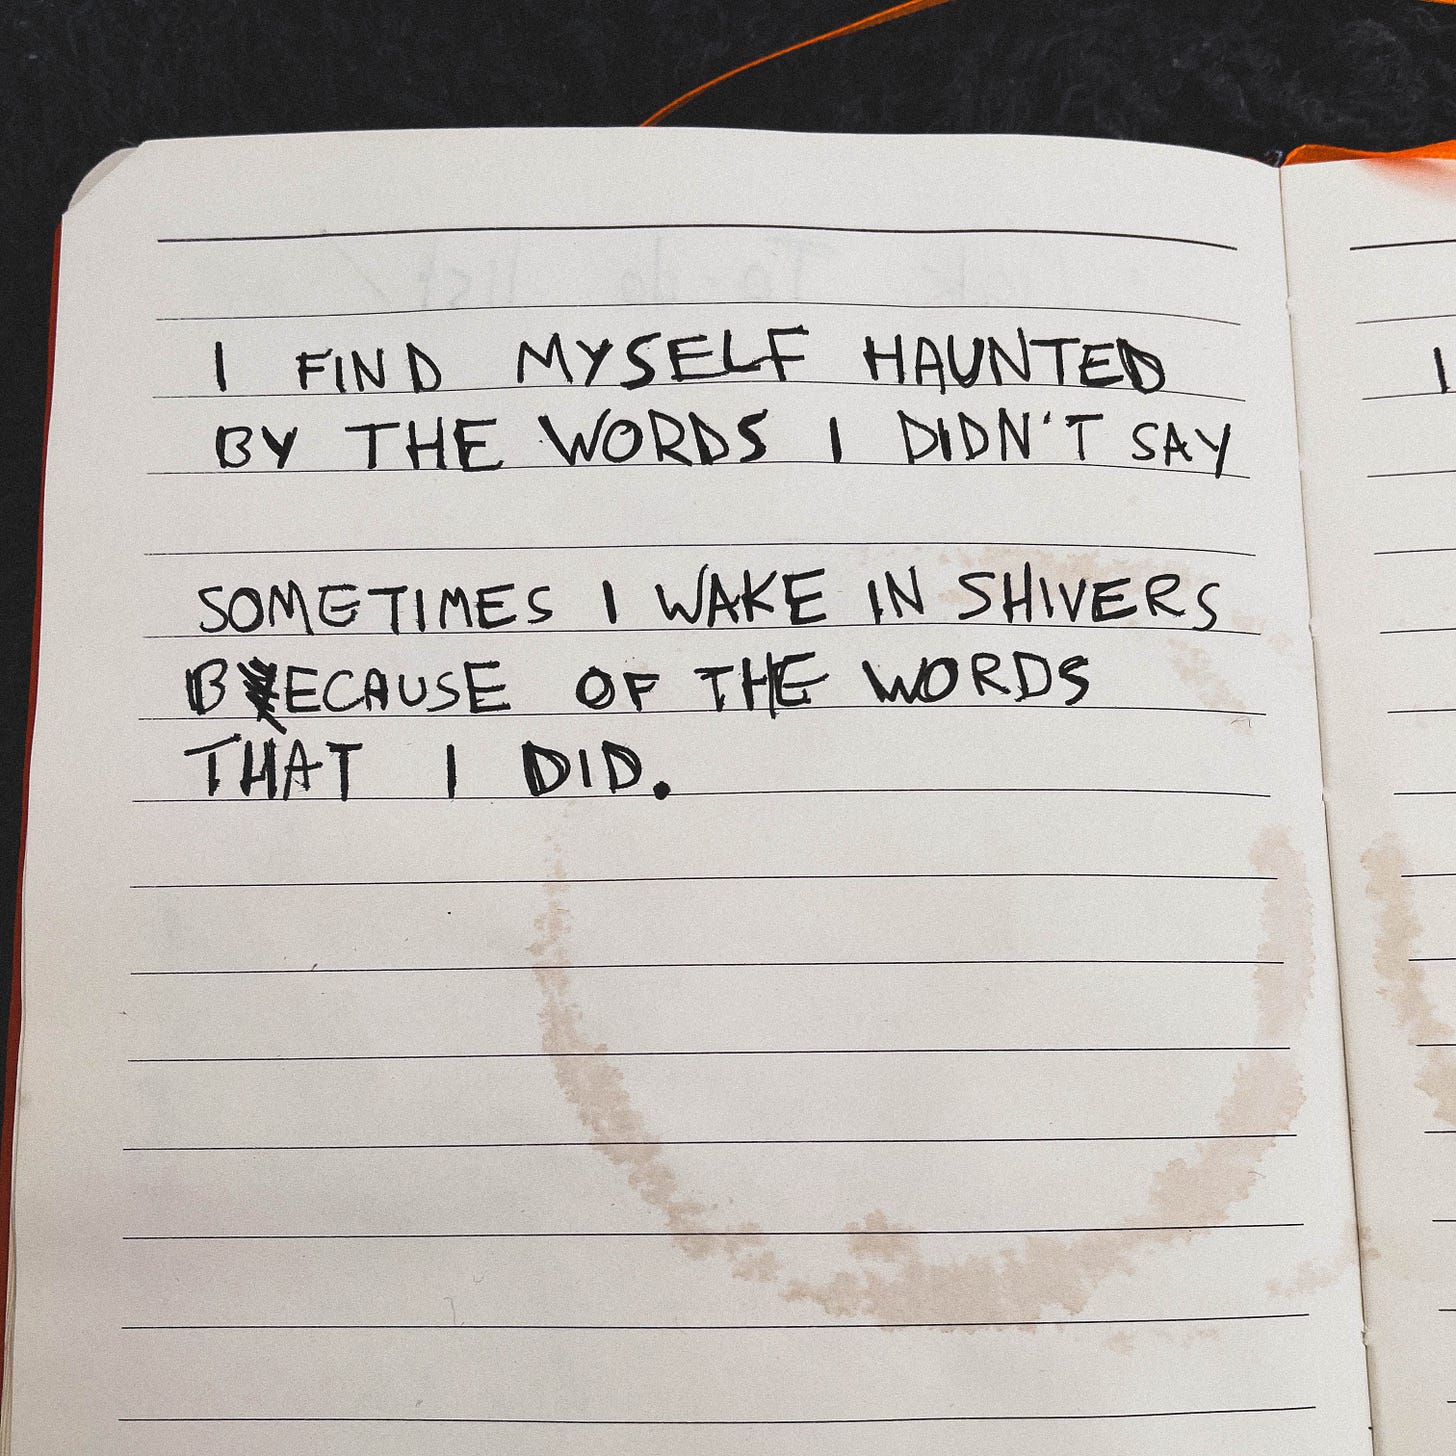 I FIND MYSELF HAUNTED
BY THE WORDS I DIDN'T SAY
SOMETIMES I WAKE IN SHIVERS
BECAUSE OF THE WORDS
THAT I DID.